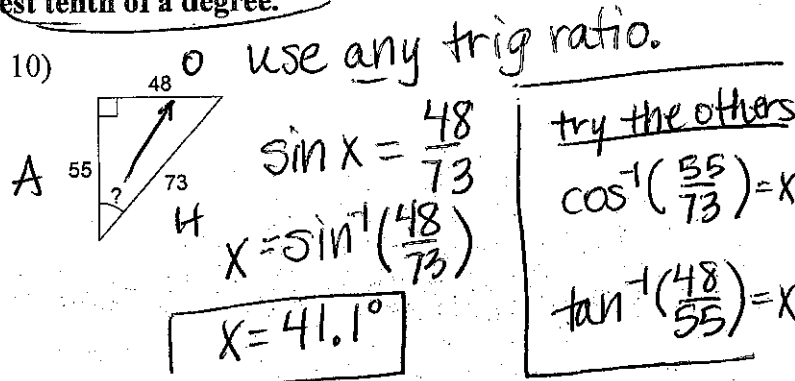 est tenth of a degree.
10)
O use any trig ratio.
48
A 55 ? 73 H
sin x = 48/73
x = sin⁻¹(48/73)
x = 41.1°
try the others
cos⁻¹(55/73) = x
tan⁻¹(48/55) = x